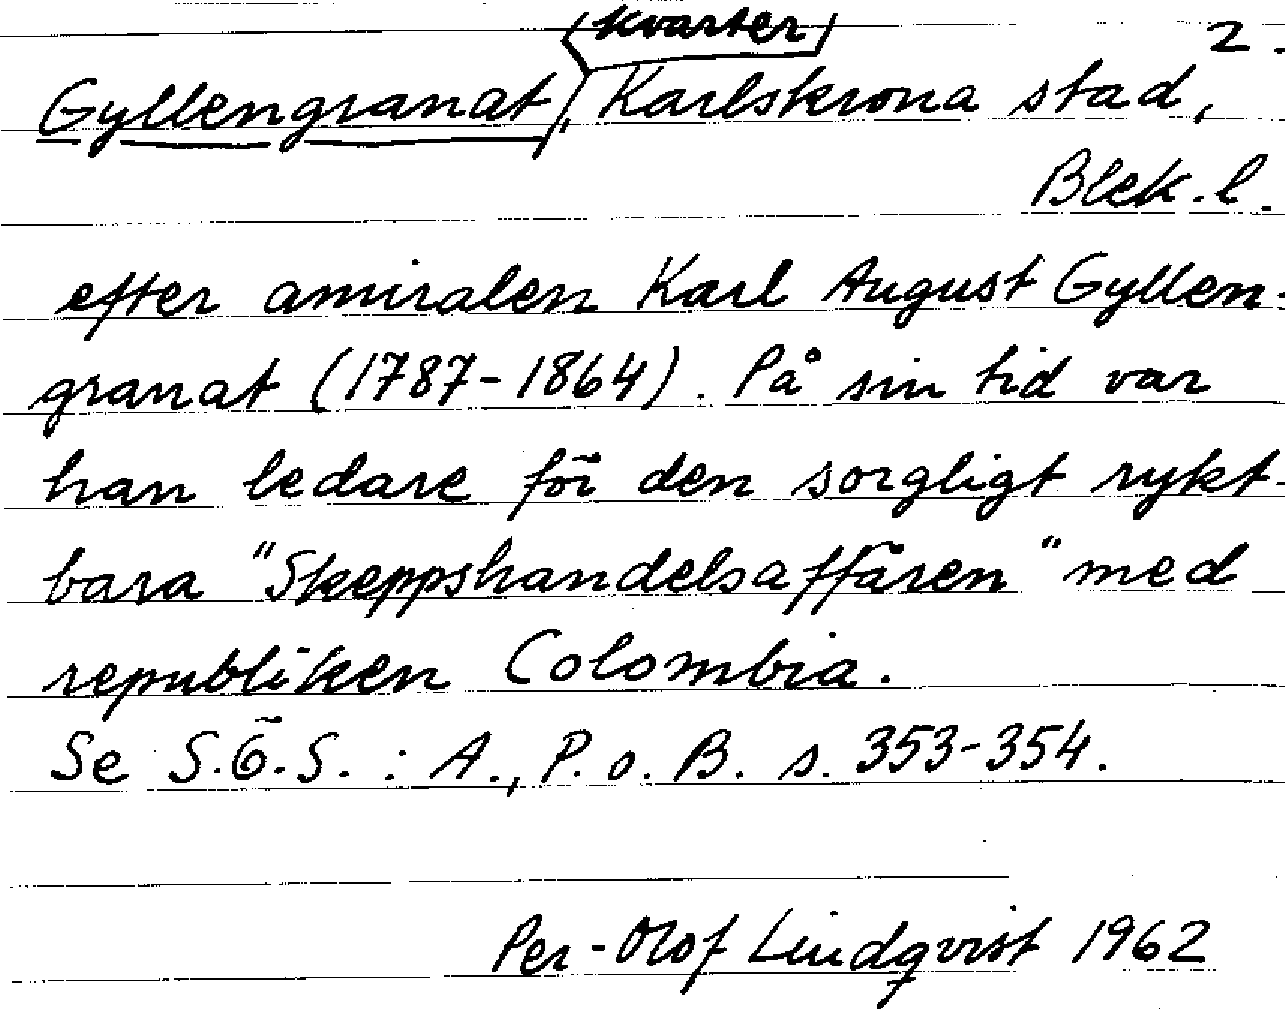 kvarter 2.
Gyllengranat, Karlskrona stad,
Blek. l.
efter amiralen Karl August Gyllen-
granat (1787-1864). På sin tid var
han ledare för den sorgligt rykt-
bara "Skeppshandelsaffären" med
republiken Colombia.
Se S.Ö.S. : A., P. o. B. s. 353-354.
Per-Olof Lindqvist 1962